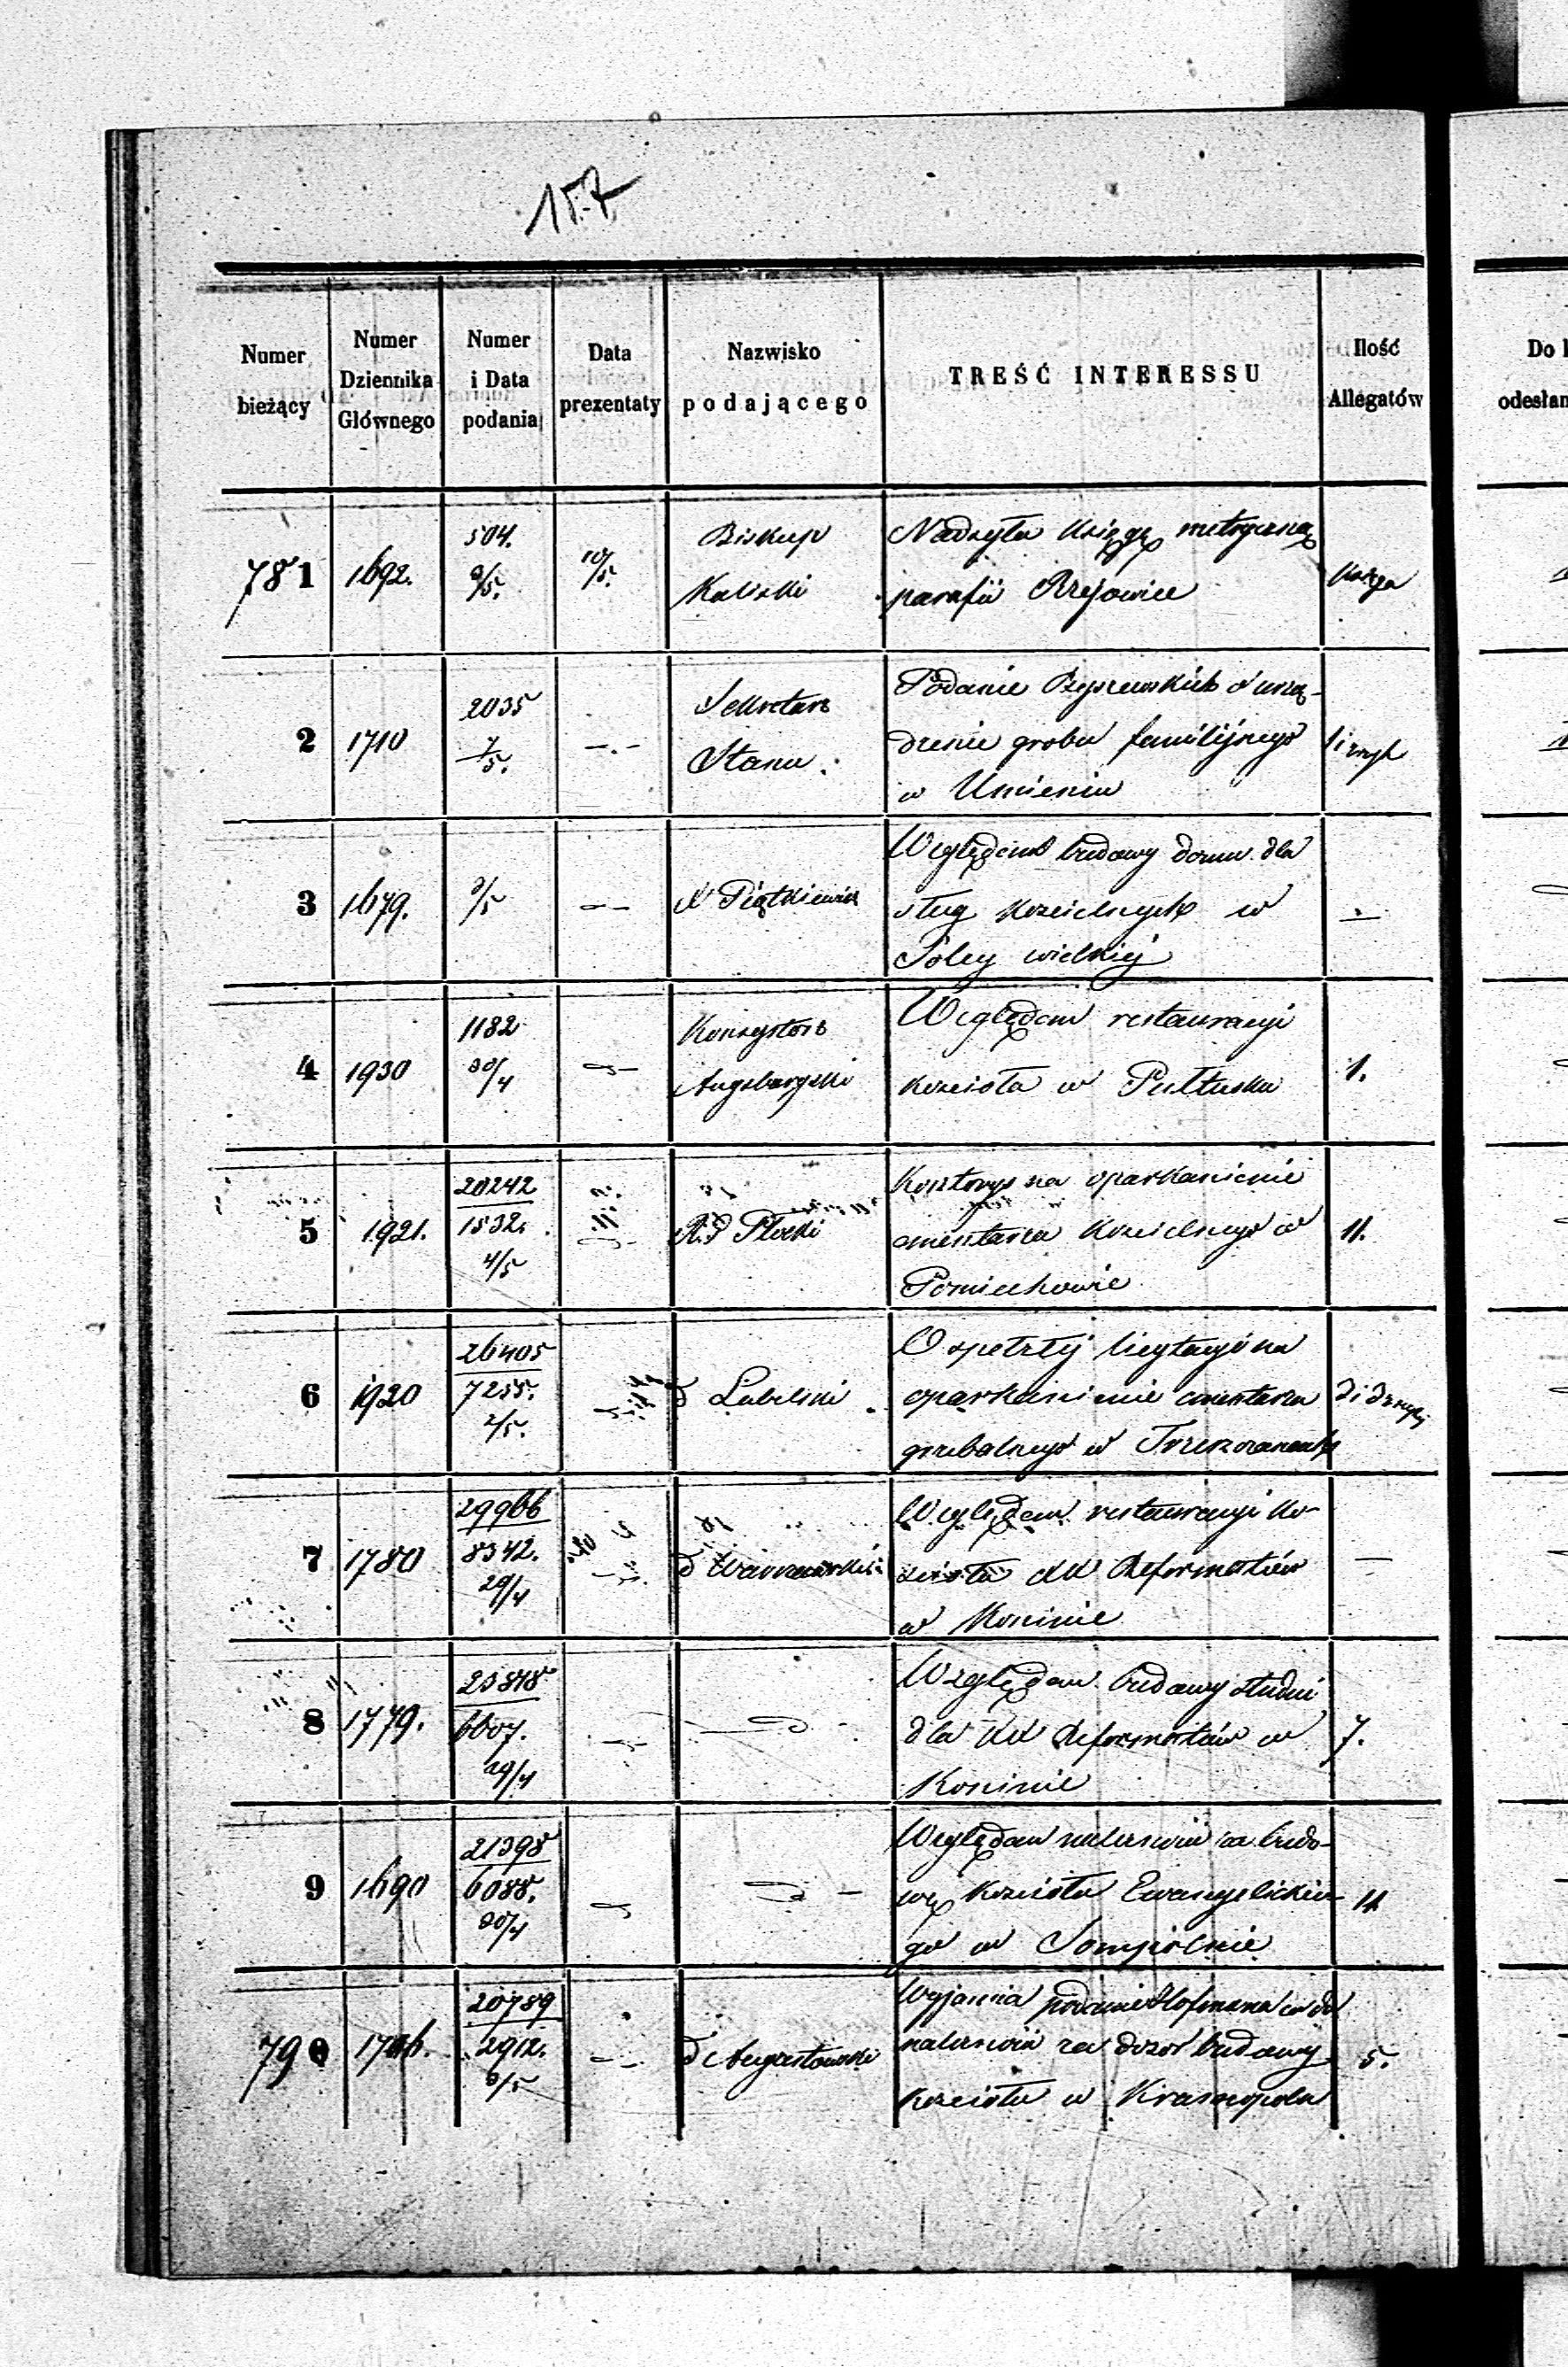 157
Numer bieżący
Numer Dziennika Głównego
Numer i Data podania
Data prezentaty
Nazwisko podającego
TREŚĆ INTERESSU
Ilość Allegatów
Do
odesłan
781 1692. 504. 9/5. 10/5. Biskup Kaliski
Nadsyła księgę metryczną
parafii księga
2 1710 2035 7/5. —.— Sekretarz Stanu.
Podanie o urzą-
dzenie grobu familijnego
w Umieniu
3 1679. 9/5 — — X Piątkiewicz
Względem budowy domu dla
sług kościelnych w
wielkiej —
4 1930 1182 30/4 — Konsystorz Augsburgski
Względem restauracyi
kościoła w Pułtusku 1.
5 1921. 20242 1532. 4/5 R.G Płocki
Kosztorys na oparkanienie
cmentarza kościelnego w
Pomiechowie 11.
6 1920 26405 7255. 2/5. d Lubelski
O spełzłej licytacyi na
oparkanienie cmentarza
grzebalnego w
7 1780 29966 8342. 29/4 d Warszawski
Względem restauracyi ko-
ścioła XX Reformatów
w Koninie —
8 1779. 23848 6607. 29/4 —
Względem budowy studni
dla XX Reformatów w
Koninie 7.
9 1690 21398 6088. 30/4 —
Względem należności za budo-
wę kościoła Ewangelickie-
go w Sompolnie 11
790 20789 2912. 3/5 — d Augustowski
Wyjaśnia podanie Hofmana co do
należności za dozór budowy
kościoła w Krasnopolu 5.